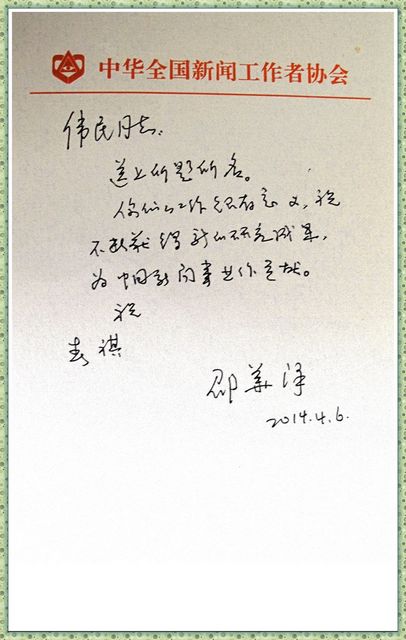 中华全国新闻工作者协会
伟民同志:
送上所题所名。
你们工作很有意义,祝
不断获得新的研究成果,
为中国新闻事业作贡献。
祝
春祺
邵华泽
2014.4.6.